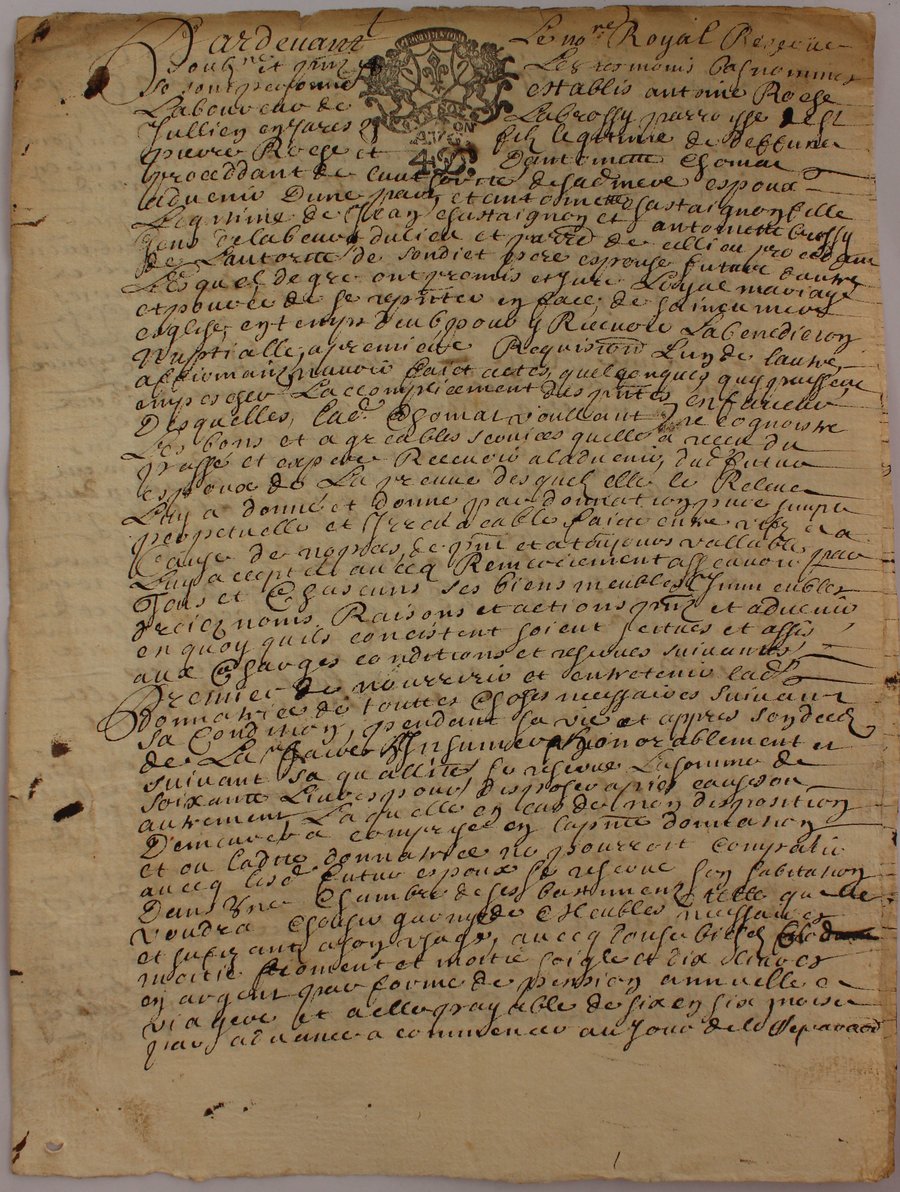 Pardevant Le no.re Royal Reserve
soub.ne et Les tesmoins basnommes
se sont personne establis antoine Roche
Laboureur de Labrosse parroisse de st
Jullien en Jares filz legitime de deffunt
pierre Roche et D'antoinette Chomat
proceddant de L'authorite de sad mere espoux
advenir D'une part, et antoinette Chastaignon fille
Legitime de Jean Chastaignon et antoinette brossy
gens de labeur du lieu et parr.e de cellieu proceddant
de L'autorite de sondict pere espouse future d'autre
Lesquels de gre ont promis et Jure Loyal mariage
et pour ce de se representer en face de sainct mere
esglise, en temps deub pour y Recevoir La benediction
Nuptialle, a premiere Requisition L'un de lautre,
affirmant n'avoir faict actes quelconques quy puissent
empescher L'accomplicement des p.ntes, en faveur
Desquelles, lad. Chomat voullant recognoistre
Les bons et agreables services quelle a receu du
passé et espere Recevoir a ladvenir, dud. futur
espoux de La preuve desquel elle le Releve
Luy a donné et donne par donnation pure simple
perpetuelle et Irrevocable faicte entre vifz et a
Cause de nopces, de p.nt et a toujours vallable, par
Luy acceptee avecq Remerciement assavoir
Tous et Chascuns ses biens meubles Immeubles
droictz noms Raisons et actions p.nt et advenir
en quoy quils concistent soient scitues et assis
aux Charges conditions et reserves suivantes,
Premier de nourrir et entretenir lad.
donnatrice de touttes Choses necessaires suivant
sa Condition, pendant sa vie et appres son decedz
de La faire Inhumer honorablement et
suivant sa quallitté se reserve La somme de
soixante Livres pour disposer apres cause ou
autrement Laquelle en cas de non disposition
Demeurera comprise en la p.nte donnation
et ou ladite donnatrice ne pourroit Compatir
avecq lesd. futur espoux se reserve son habitation
Dans Une Chambre de ses bastiment telle quelle
voudra Choisir garnye de Meubles necessaires
et suffizant a son usage, avecq
moitie froment et moitie soigle et dix Livres
en argent par forme de pension annuelle
viagere et a elle payable de six en six mois
par advance a commencer au Jour de la separation